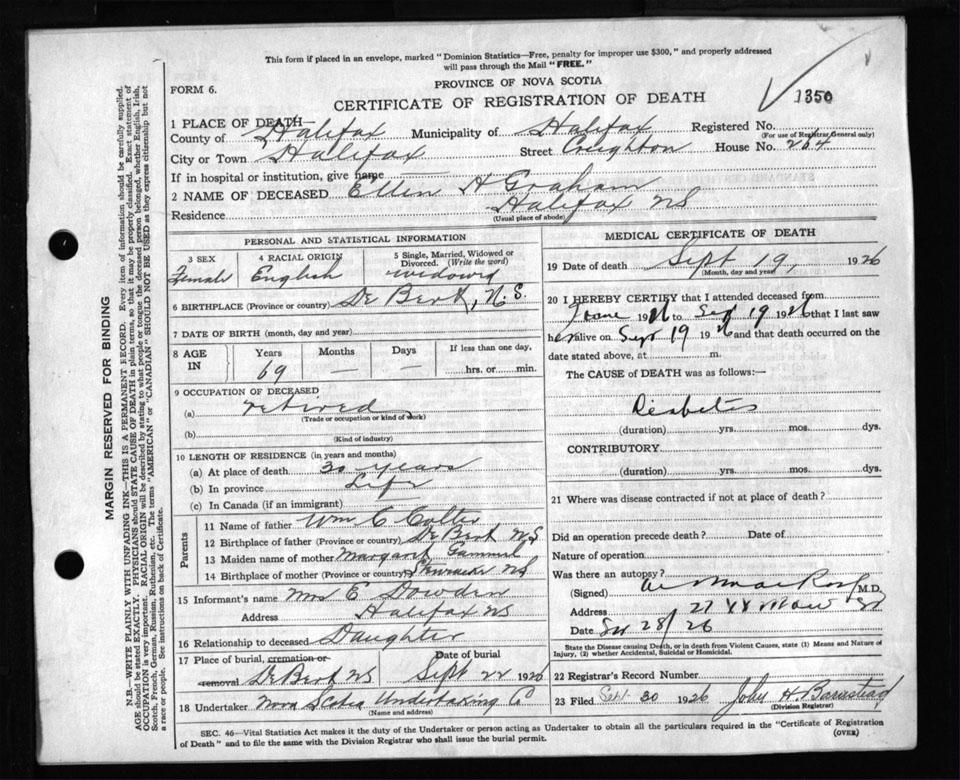 This form if placed in an envelope, marked "Dominion Statistics—Free, penalty for improper use $300," and properly addressed
will pass through the Mail "FREE."
PROVINCE OF NOVA SCOTIA
FORM 6.
CERTIFICATE OF REGISTRATION OF DEATH
1350
1 PLACE OF DEATH—
County of Halifax Municipality of Halifax Registered No.
(For use of Registrar General only)
City or Town Halifax Street Creighton House No. 264
If in hospital or institution, give name
2 NAME OF DECEASED Ellen H Graham
Residence Halifax NS
(Usual place of abode)
PERSONAL AND STATISTICAL INFORMATION
3 SEX 4 RACIAL ORIGIN 5 Single, Married, Widowed or Divorced. (Write the word)
Female English widowed
6 BIRTHPLACE (Province or country) De Bert, N.S.
7 DATE OF BIRTH (month, day and year)
8 AGE IN Years Months Days If less than one day.
69 — — hrs. or min.
9 OCCUPATION OF DECEASED
(a) retired
(Trade or occupation or kind of work)
(b)
(Kind of industry)
10 LENGTH OF RESIDENCE (in years and months)
(a) At place of death 30 years
(b) In province Life
(c) In Canada (if an immigrant)
Parents
11 Name of father Wm C Colter
12 Birthplace of father (Province or country) De Bert NS
13 Maiden name of mother Margaret Gammel
14 Birthplace of mother (Province or country) NS
15 Informant's name Mrs E Dowden
Address Halifax NS
16 Relationship to deceased Daughter
17 Place of burial, cremation or removal De Bert NS Date of burial Sept 22 1926
18 Undertaker Nova Scotia Undertaking C
(Name and address)
MEDICAL CERTIFICATE OF DEATH
19 Date of death Sept 19, 1926
(Month, day and year)
20 I HEREBY CERTIFY that I attended deceased from
June 1926 to Sep 19 1926 that I last saw
her alive on Sept 19 1926 and that death occurred on the
date stated above, at m.
The CAUSE of DEATH was as follows:—
Diabetes
(duration) yrs. mos. dys.
CONTRIBUTORY
(duration) yrs. mos. dys.
21 Where was disease contracted if not at place of death?
Did an operation precede death? Date of
Nature of operation
Was there an autopsy?
(Signed) M.D.
Address 27
Date 28/26
State the Disease causing Death, or in death from Violent Causes, state (1) Means and Nature of
Injury, (2) whether Accidental, Suicidal or Homicidal.
22 Registrar's Record Number
23 Filed Sept 30 1926 John H. Barnstead
(Division Registrar)
SEC. 46—Vital Statistics Act makes it the duty of the Undertaker or person acting as Undertaker to obtain all the particulars required in the "Certificate of Registration
of Death" and to file the same with the Division Registrar who shall issue the burial permit. (OVER)
MARGIN RESERVED FOR BINDING
N.B.—WRITE PLAINLY WITH UNFADING INK—THIS IS A PERMANENT RECORD. Every item of information should be carefully supplied.
AGE should be stated EXACTLY. PHYSICIANS should STATE CAUSE OF DEATH in plain terms, so that it may be properly classified. Exact statement of
OCCUPATION is very important. RACIAL ORIGIN will be described by stating to what people or tongue the deceased person belonged, whether English, Irish,
Scotch, French, German, Russian, Ruthenian, etc. The terms "AMERICAN" or "CANADIAN" SHOULD NOT BE USED as they express citizenship but not
a race or people. See instructions on back of Certificate.